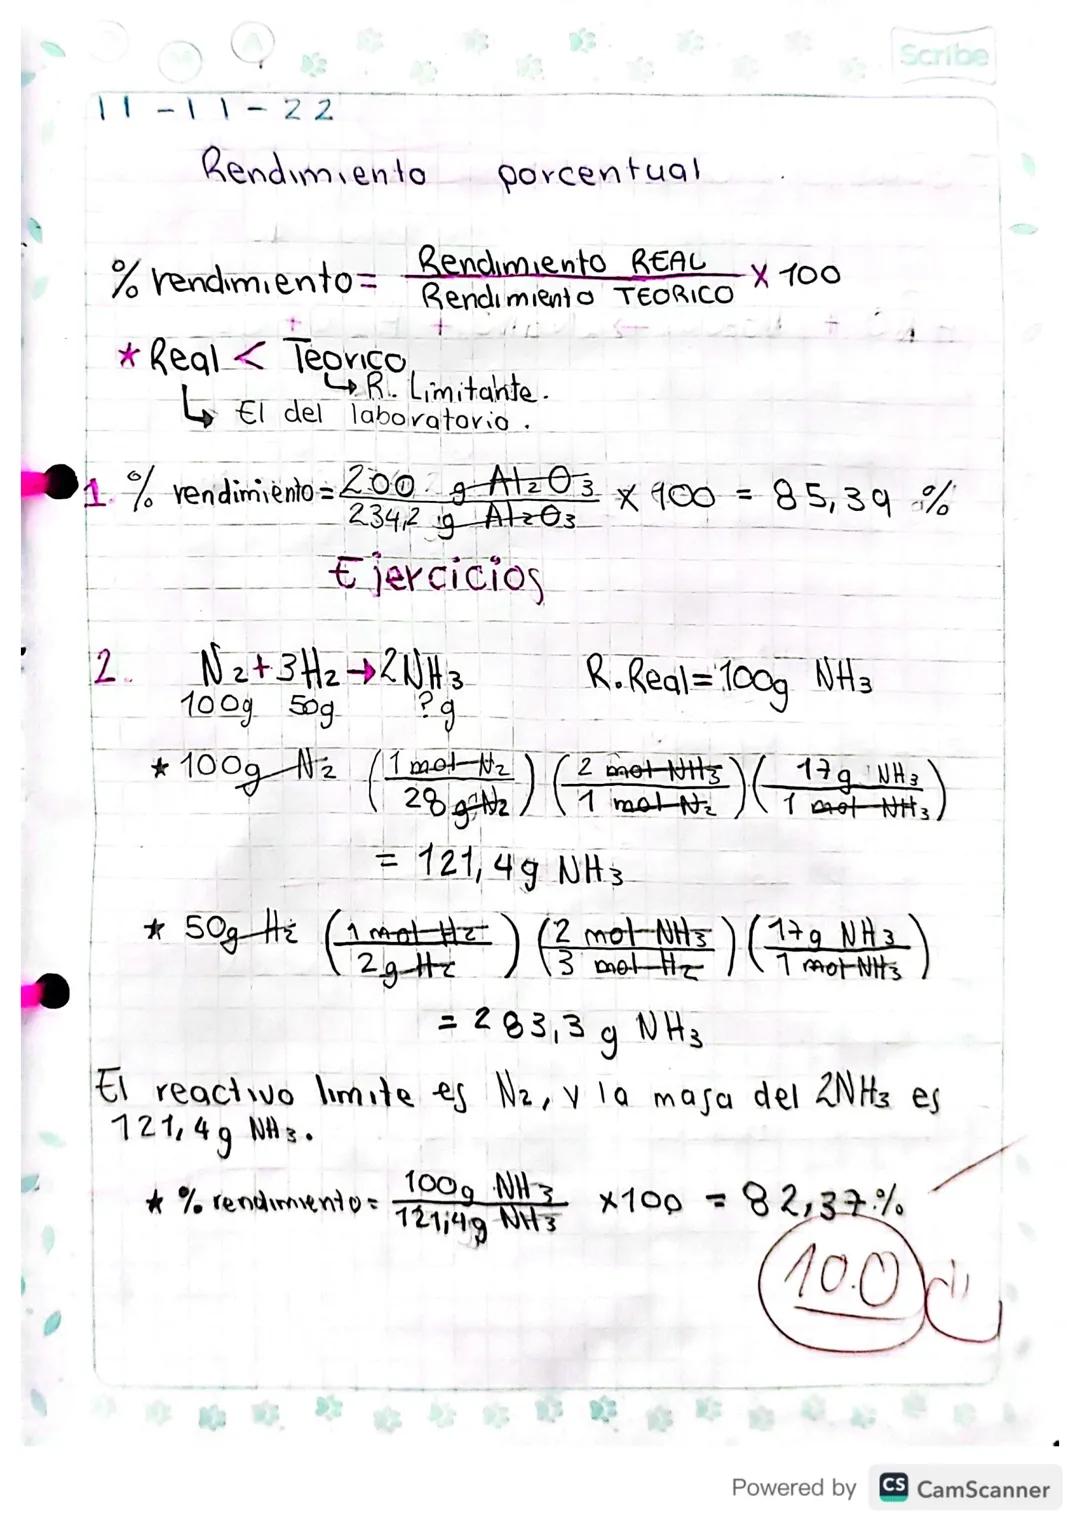 Scribe
11-11-22
Rendimiento porcentual
% rendimiento = Rendimiento REAL / Rendimiento TEORICO x 100
* Real < Teorico
↳ R. Limitante.
↳ El del laboratorio.
1. % rendimiento = 200 g Al2O3 / 234,2 g Al2O3 x 100 = 85,39 %
Ejercicios
2. N2 + 3H2 → 2NH3 R. Real = 100g NH3
100g 50g ? g
* 100g N2 (1 mol N2 / 28 g N2) (2 mol NH3 / 1 mol N2) (17g NH3 / 1 mol NH3)
= 121,4g NH3
* 50g H2 (1 mol H2 / 2g H2) (2 mol NH3 / 3 mol H2) (17g NH3 / 1 mol NH3)
= 283,3 g NH3
El reactivo limite es N2, y la masa del 2NH3 es
121,4g NH3.
* % rendimiento = 100g NH3 / 121,4g NH3 x100 = 82,37%
10.0
Powered by CS CamScanner